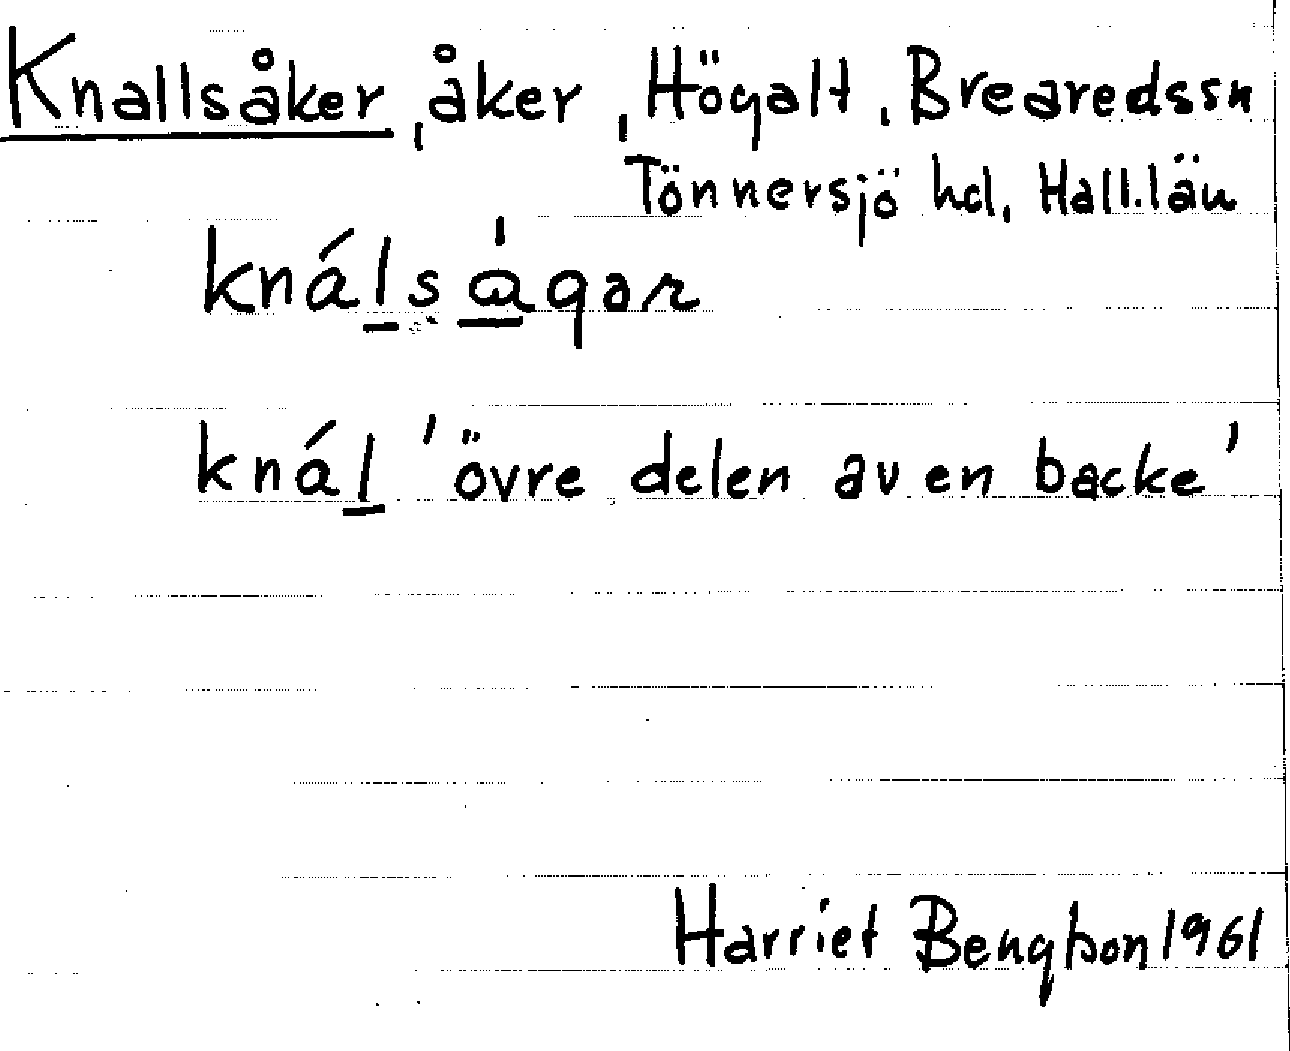 Knallsåker, åker, Högalt, Brearedssn
Tönnersjö hd, Hall.län
knálsågar
knál 'övre delen av en backe'
Harriet Bengtson 1961